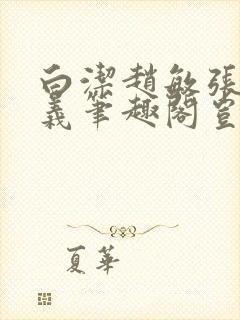 白潔趙敏張
義筆趣閣豈
夏華